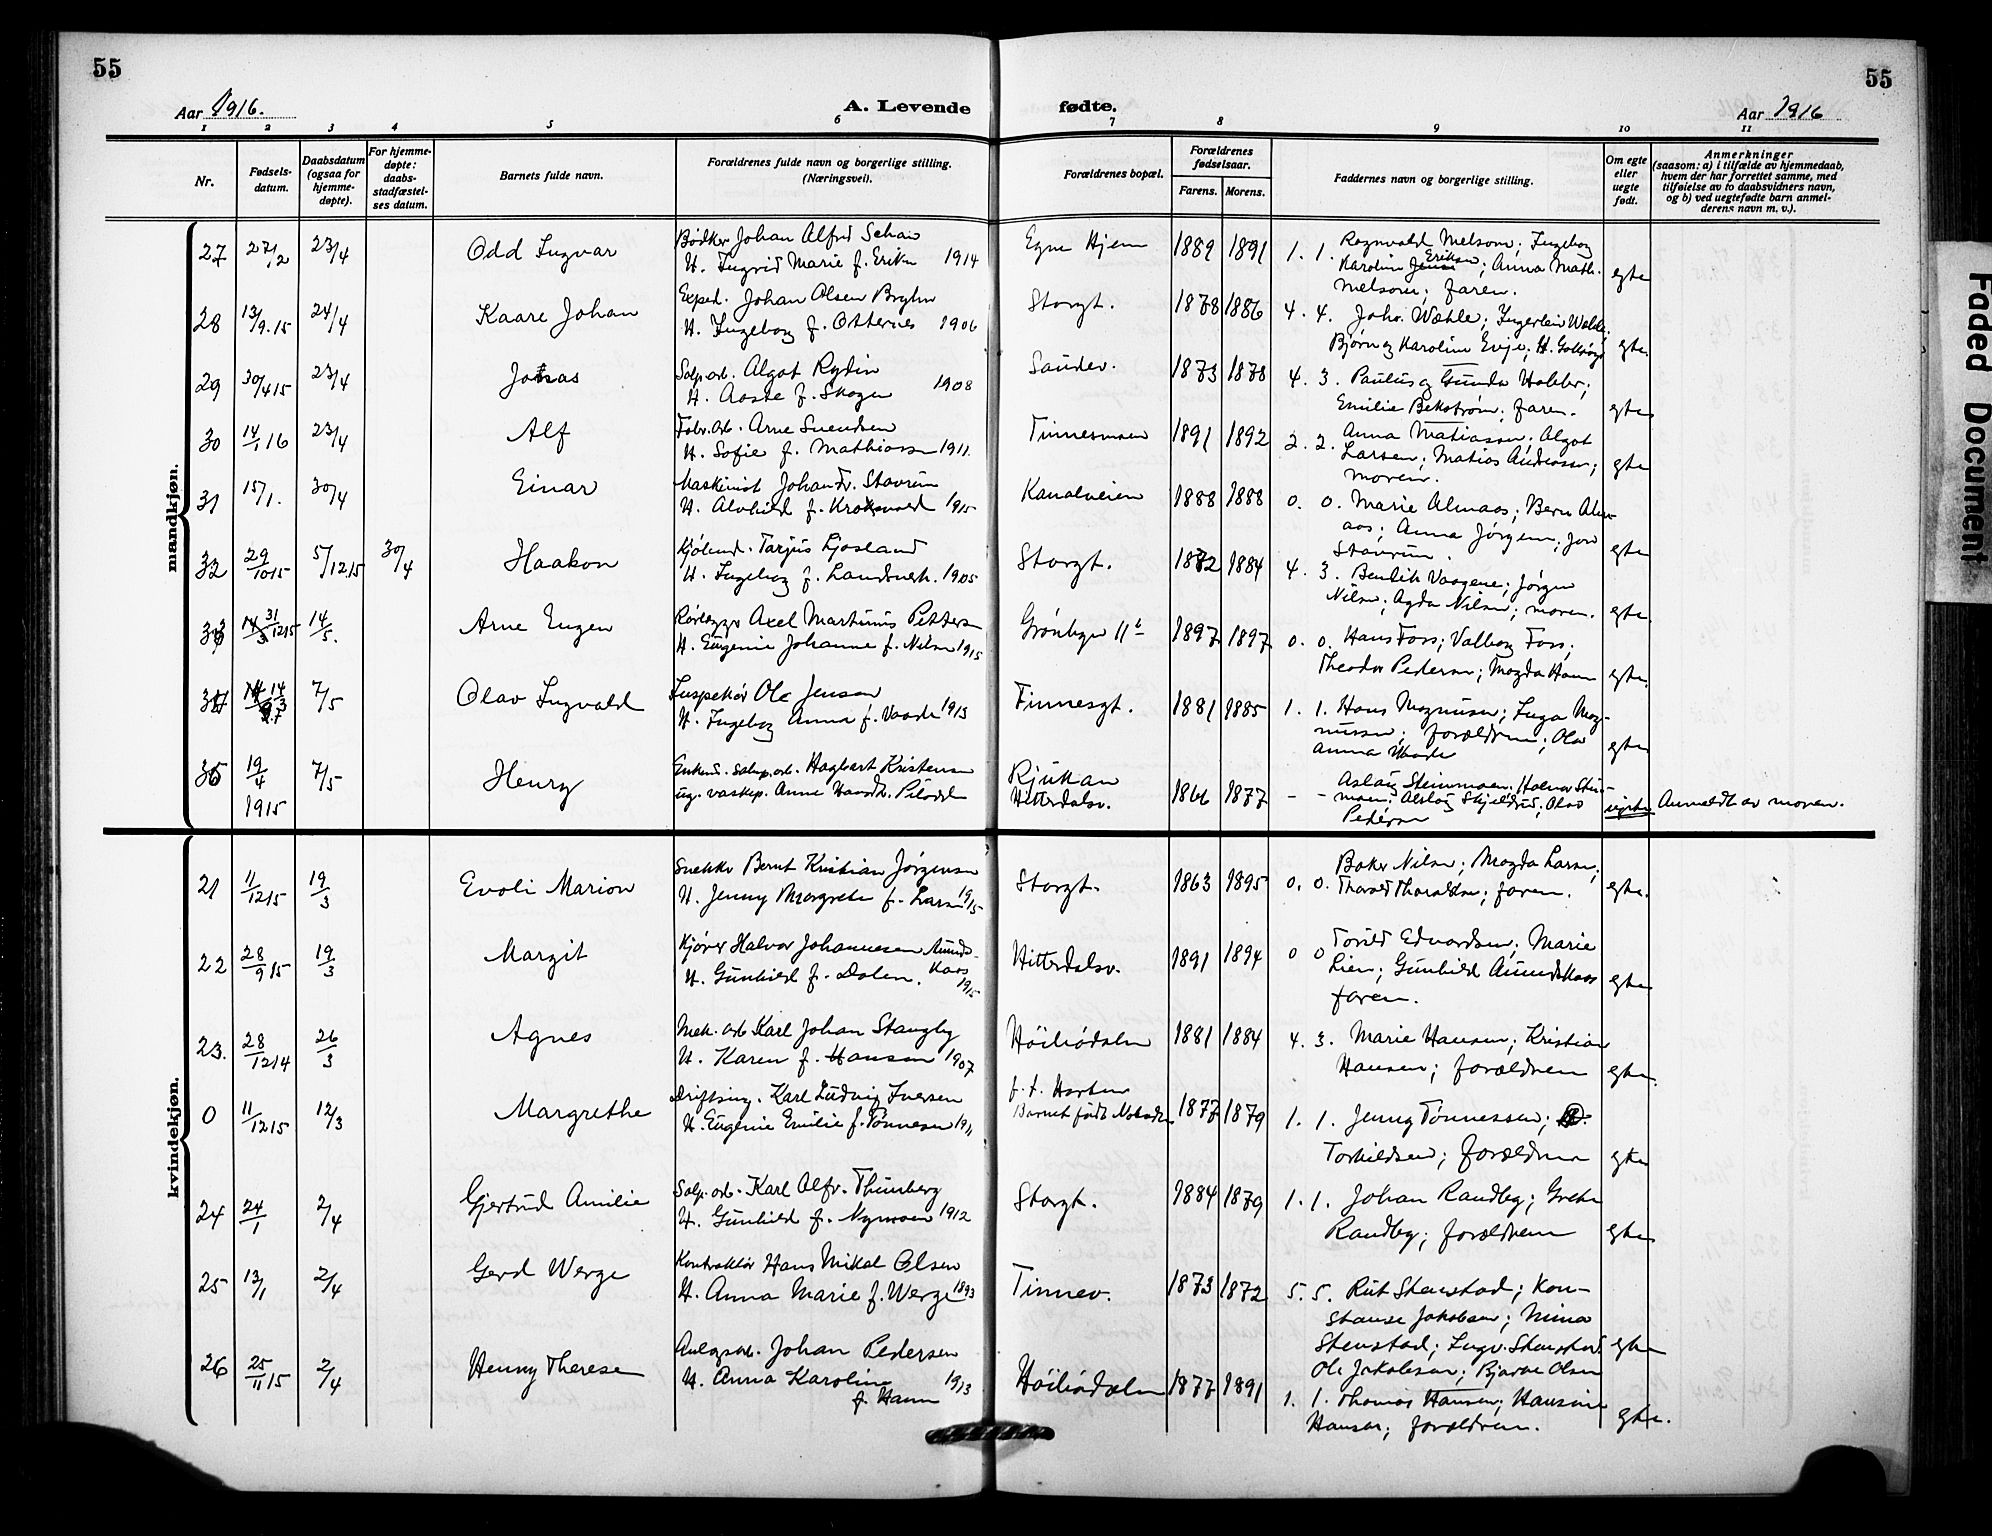 55
55
Aar 1916.
A. Levende fødte.
Aar 1916
1 2 3 4 5 6 7 8 9 10 11
Nr.
Fødsels-
datum.
Daabsdatum
(ogsaa for
hjemme-
døpte).
For hjemme-
døpte:
daabs-
stadfæstel-
ses datum.
Barnets fulde navn.
Forældrenes fulde navn og borgerlige stilling.
(Næringsvei).
Forældrenes bopæl.
Forældrenes
fødselsaar.
Farens. Morens.
Faddernes navn og borgerlige stilling.
Om egte
eller
uegte
født.
Anmerkninger
(saasom: a) i tilfælde av hjemmedaab,
hvem der har forrettet samme, med
tilføielse av to daabsvidners navn,
og b) ved uegtefødte barn anmel-
derens navn m. v.).
mandkjøn.
27 27/2 23/4 Odd Ingvar
Bødker Johan Alfred
H. Ingrid Marie f. Eriksen 1914
Egne Hjem 1889 1891 1. 1.
Ragnvald Melsom; Ingeborg
Karoline Eriksen; Anna Math.
Melsom; faren.
egte
28 13/9.15 24/4 Kaare Johan
Exped. Johan Olsen
H. Ingeborg f. Otternes 1906
Storgt. 1878 1886 4. 4.
Joh. Wæhle; Wæhle;
Bjørn og Karoline Evje;
egte.
29 30/4 15 23/4 Jonas
Salp.arb. Algot Rydin
H. Aaste f. Skogen 1908
Sandev. 1873 1878 4. 3.
Paulus og Gunda
Emilie Bekstrøm; faren.
egte
30 14/1 16 23/4 Alf
Fabr.arb. Arne Svendsen
H. Sofie f. Mathiassen 1911
Tinnesmoen 1891 1892 2. 2.
Anna Matiassen; Algot
Larsen; Matias Andreassen;
moren.
egte
31 15/1. 30/4 Einar
Maskinist Johan Fr. Stavrum
H. Alvhild f. 1915
Kanalveien 1888 1888 0. 0.
Marie Almaas; Bern Alm-
aas; Anna Jørgens; Jon
Stavrum.
egte
32 29/10 15 5/12 15 30/4 Haakon
Kjølem. Tarjus Ljosland
H. Ingeborg f. Landsverk. 1905
Storgt. 1872 1884 4. 3.
Bendik Vaagene; Jørgen
Nilsen; Agda Nilsen; moren.
egte
33 31/12 15 14/5. Arne Eugen
Rørlegger Axel Martinius Pettersen
H. Eugenie Johanne f. Nilsen 1915
Grønbyen 11b 1897 1897 0. 0.
Hans Foss; Valborg Foss;
Theodor Pedersen; Magda Haun
egte.
34 14/3 7/5 Olav Ingvald
Inspektør Ole Jensen
H. Ingeborg Anna f. Vaade 1913
Tinnesgt. 1881 1885 1. 1.
Hans Magnusen; Inga Mag-
nussen; forældrene; Olav
Anna Vaade
egte
35 19/4 1915 7/5 Henry
Enkem. salp.arb. Hagbart Kristensen
ug. vaskep. Anne
Rjukan
Hitterdalsv. 1866 1877 - -
Aslaug Steinmoen. Halvor Stein-
moen; Olav
Pedersen
uegte Anmeldt av moren.
kvindekjøn.
21 11/12 15 19/3 Evoli Marion
Snekker Bernt Kristian Jørgensen
H. Jenny Margrethe f. Larsen 1915
Storgt. 1863 1895 0. 0.
Nilsen; Magda Larsen;
Thorald Thoraldsen; faren.
egte.
22 28/9 15 19/3 Margit
Kjører Halvor Johannesen Aamds-
kaas
H. Gunhild f. Dalen. 1915
Hitterdalsv. 1891 1894 0 0
Edvardsen; Marie
Lien; Gunhild Aamdskaas
faren.
egte
23. 28/12 14 26/3 Agnes
Mek. arb. Karl Johan Stangby
H. Karen f. Hansen 1907
Høibiødalen 1881 1884 4. 3.
Marie Hansen; Kristian
Hansen; forældrene
egte.
0 11/12 15 12/3 Margrethe
Driftsing. Karl Ludvig Iversen
H. Eugenie Emilie f. Tønnesen 1911
f. t. Horten
Barnet født Notodden 1877 1879 1. 1.
Jenny Tønnessen;
Torkildsen; forældrene
egte
24 24/1 2/4 Gjertrud Amilie
Salp. arb. Karl Alfr. Thunberg
H. Gunhild f. Nymoen 1912
Storgt. 1884 1879 1. 1.
Johan Randby; Grete
Randby; forældrene
egte
25 13/1 2/4 Gerd Werge
Kontraktør Hans Mikal Olsen
H. Anna Marie f. Werge 1893
Tinnev. 1873 1872 5. 5.
Rut Stenstad; Kon-
stanse Jakobsen; Nina
Stenstad; Ingv. Stenstad
Ole Jakobsen; Bjarne Olsen
egte
26 25/11 15 2/4 Henny Therese
Anlegsarb. Johan Pedersen
H. Anna Karoline 1913
f. Haun
Høibiødalen 1877 1891 1. 1.
Thomas Hansen; Hansine
Hansen; forældrene.
egte.
Faded Document